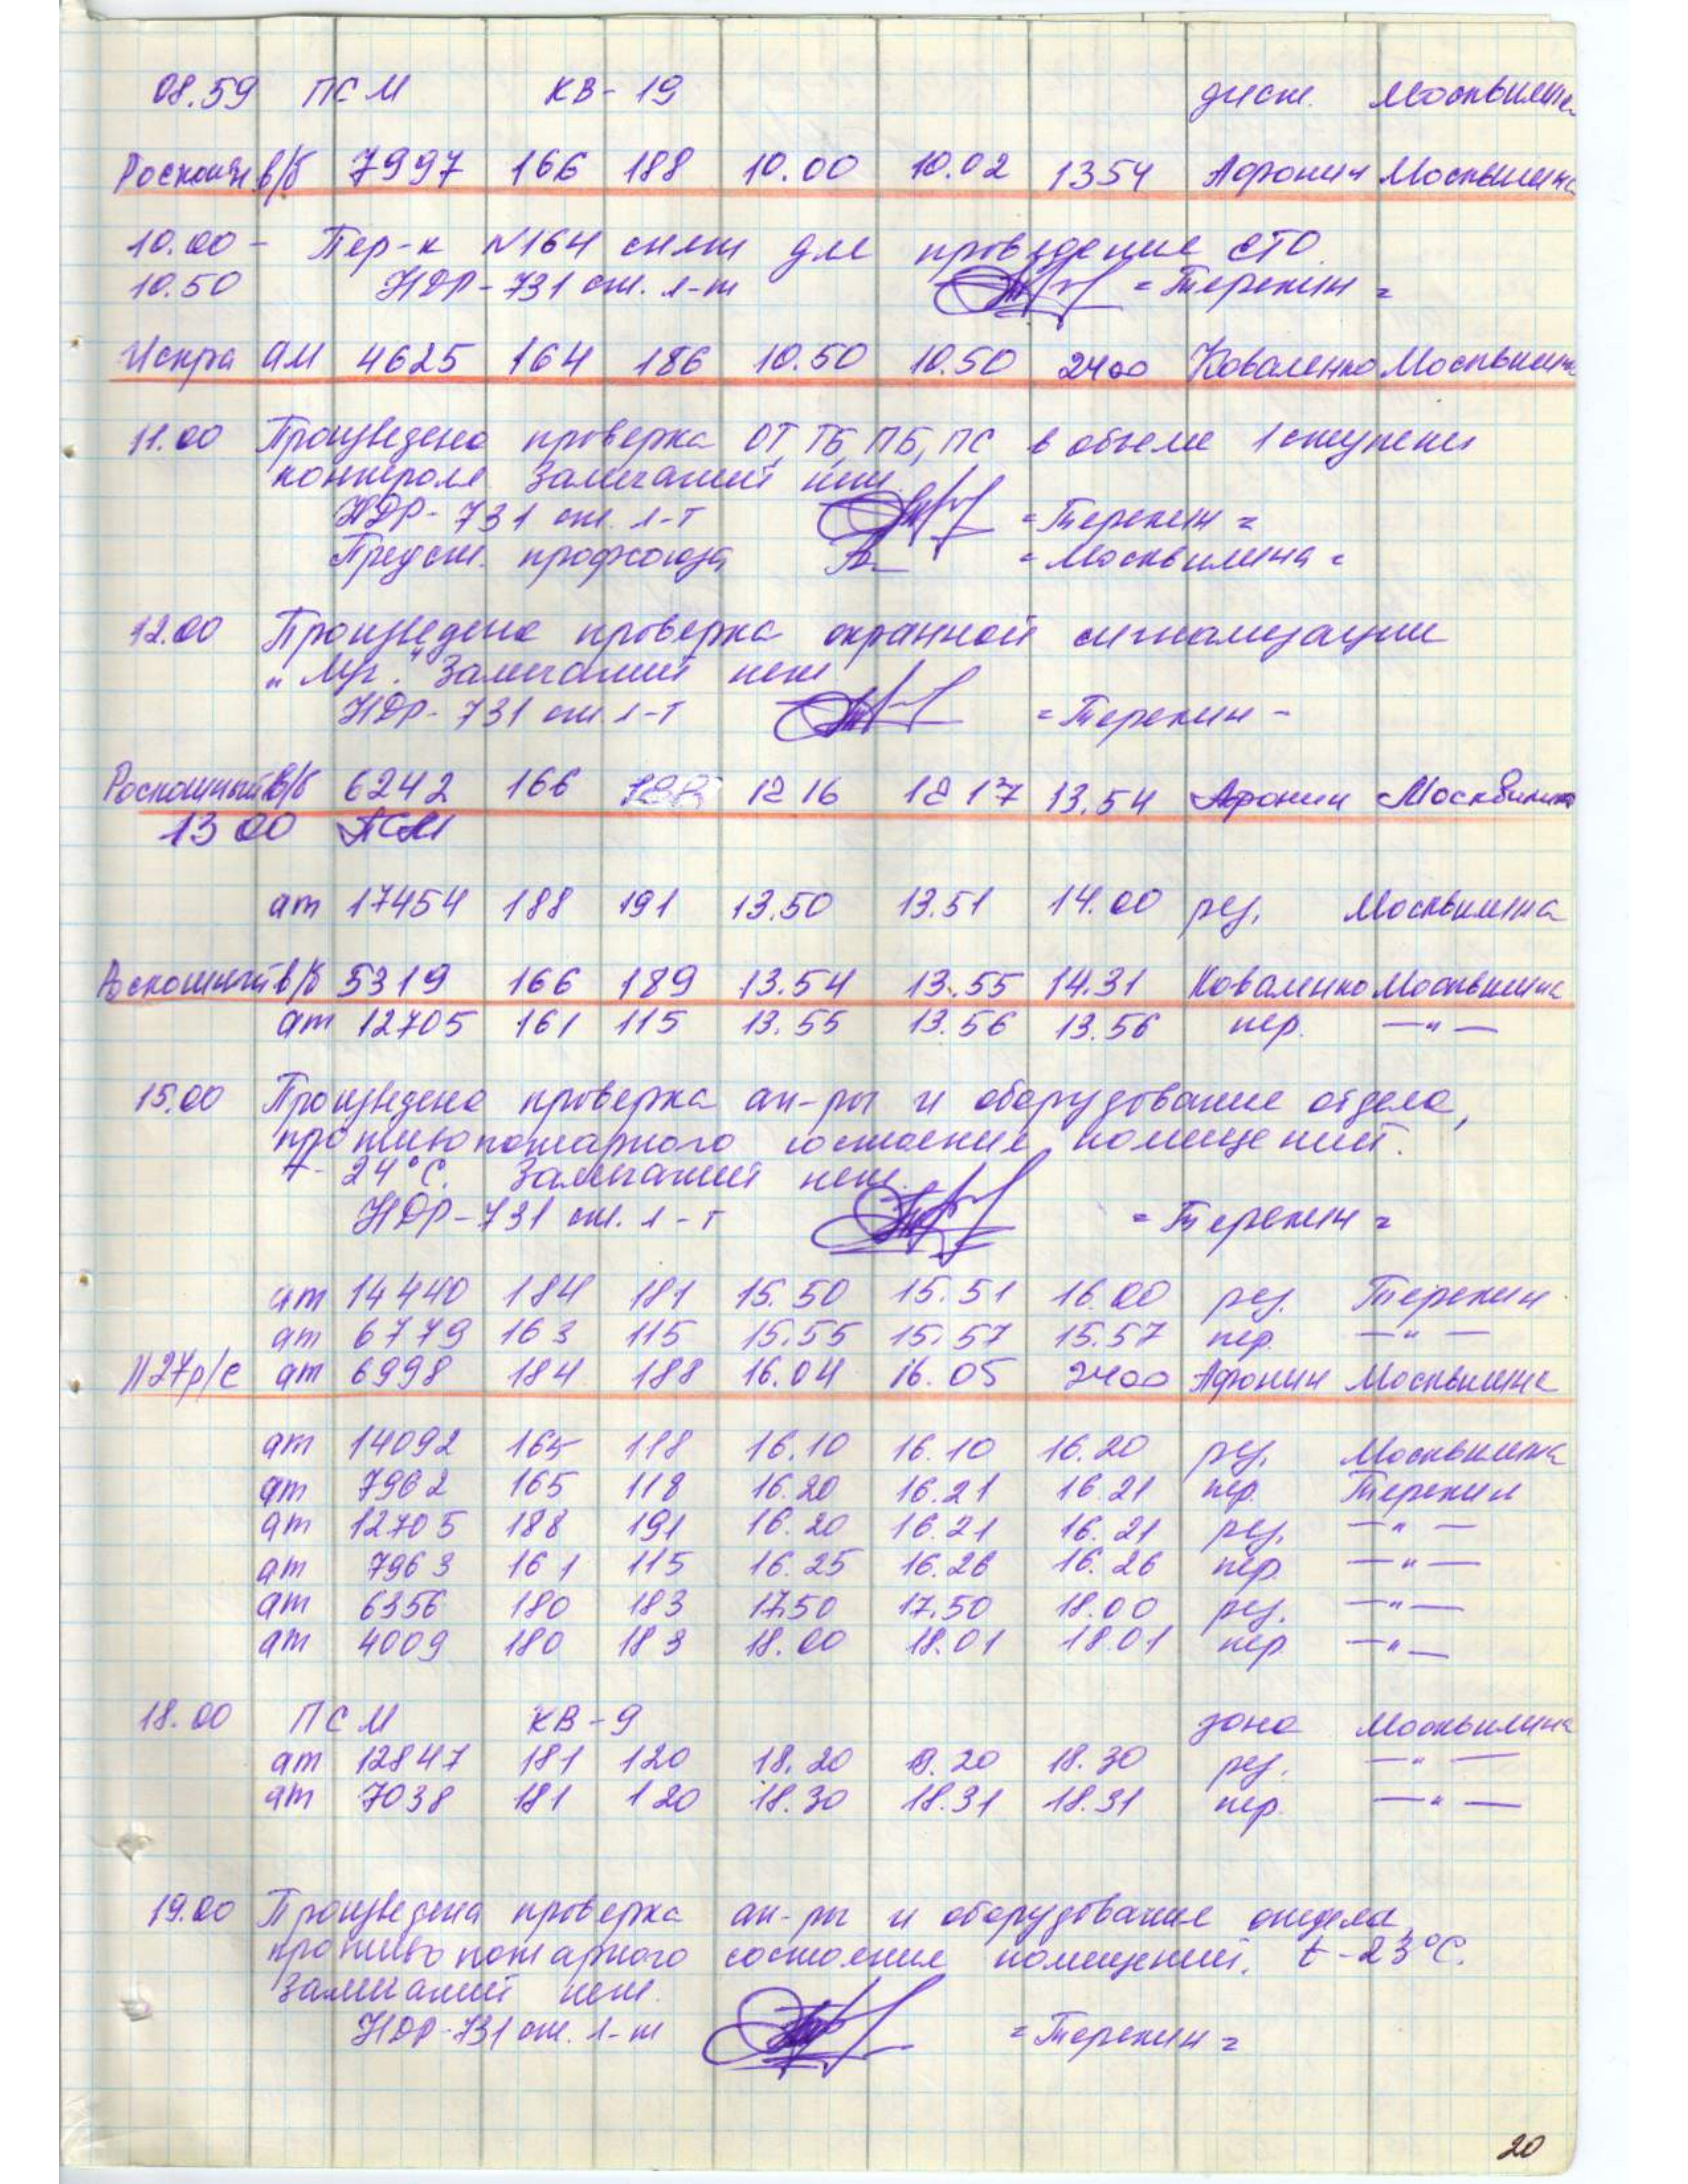 08.59 ПСМ КВ-19 дист. Москвилина
Роскошн в/б 7997 166 188 10.00 10.02 1354 Афонин Москвилина
10.00 - Пер-к №164 снят для проведение СТО.
10.50 НДР-731 ст. л-т =Терехин=
Искра ам 4625 164 186 10.50 10.50 2400 Коваленко Москвилина
11.00 Произведена проверка ОТ, ТБ, ПБ, ПС в объеме 1 ступени
контроля. Замечаний нет.
НДР-731 ст. л-т =Терехин=
Предст. профсоюза =Москвилина=
12.00 Произведена проверка охранной сигнализации
Замечаний нет
НДР-731 ст л-т =Терехин-
Роскошный в/б 6242 166 188 12 16 12 17 13.54 Афонин Москвилина
13 00 ПСМ
ат 17454 188 191 13.50 13.51 14.00 рез. Москвилина
Роскошный в/б 5319 166 189 13.54 13.55 14.31 Коваленко Москвилина
ат 12705 161 115 13.55 13.56 13.56 пер. —"—
15.00 Произведена проверка ап-ры и оборудование отдела,
противопожарного состояние помещений.
t- 24°С. Замечаний нет.
НДР-731 ст. л-т =Терехин=
ат 14440 184 181 15.50 15.51 16.00 рез. Терехин
ат 6779 163 115 15.55 15.57 15.57 пер. —"—
1127р/с ат 6998 184 188 16.04 16.05 2400 Афонин Москвилина
ат 14092 165 118 16.10 16.10 16.20 рез. Москвилина
ат 7962 165 118 16.20 16.21 16.21 пер. Терехин
ат 12705 188 191 16.20 16.21 16.21 рез. —"—
ат 7963 161 115 16.25 16.26 16.26 пер. —"—
ат 6356 180 183 17.50 17.50 18.00 рез. —"—
ат 4009 180 183 18.00 18.01 18.01 пер —"—
18.00 ПСМ КВ-9 зона Москвилина
ат 12847 181 120 18.20 18.20 18.30 рез. —"—
ат 7038 181 120 18.30 18.31 18.31 пер. —"—
19.00 Произведена проверка ап-ры и оборудование отдела,
противопожарного состояние помещений. t-23°С.
Замечаний нет.
НДР-731 ст. л-т =Терехин=
20